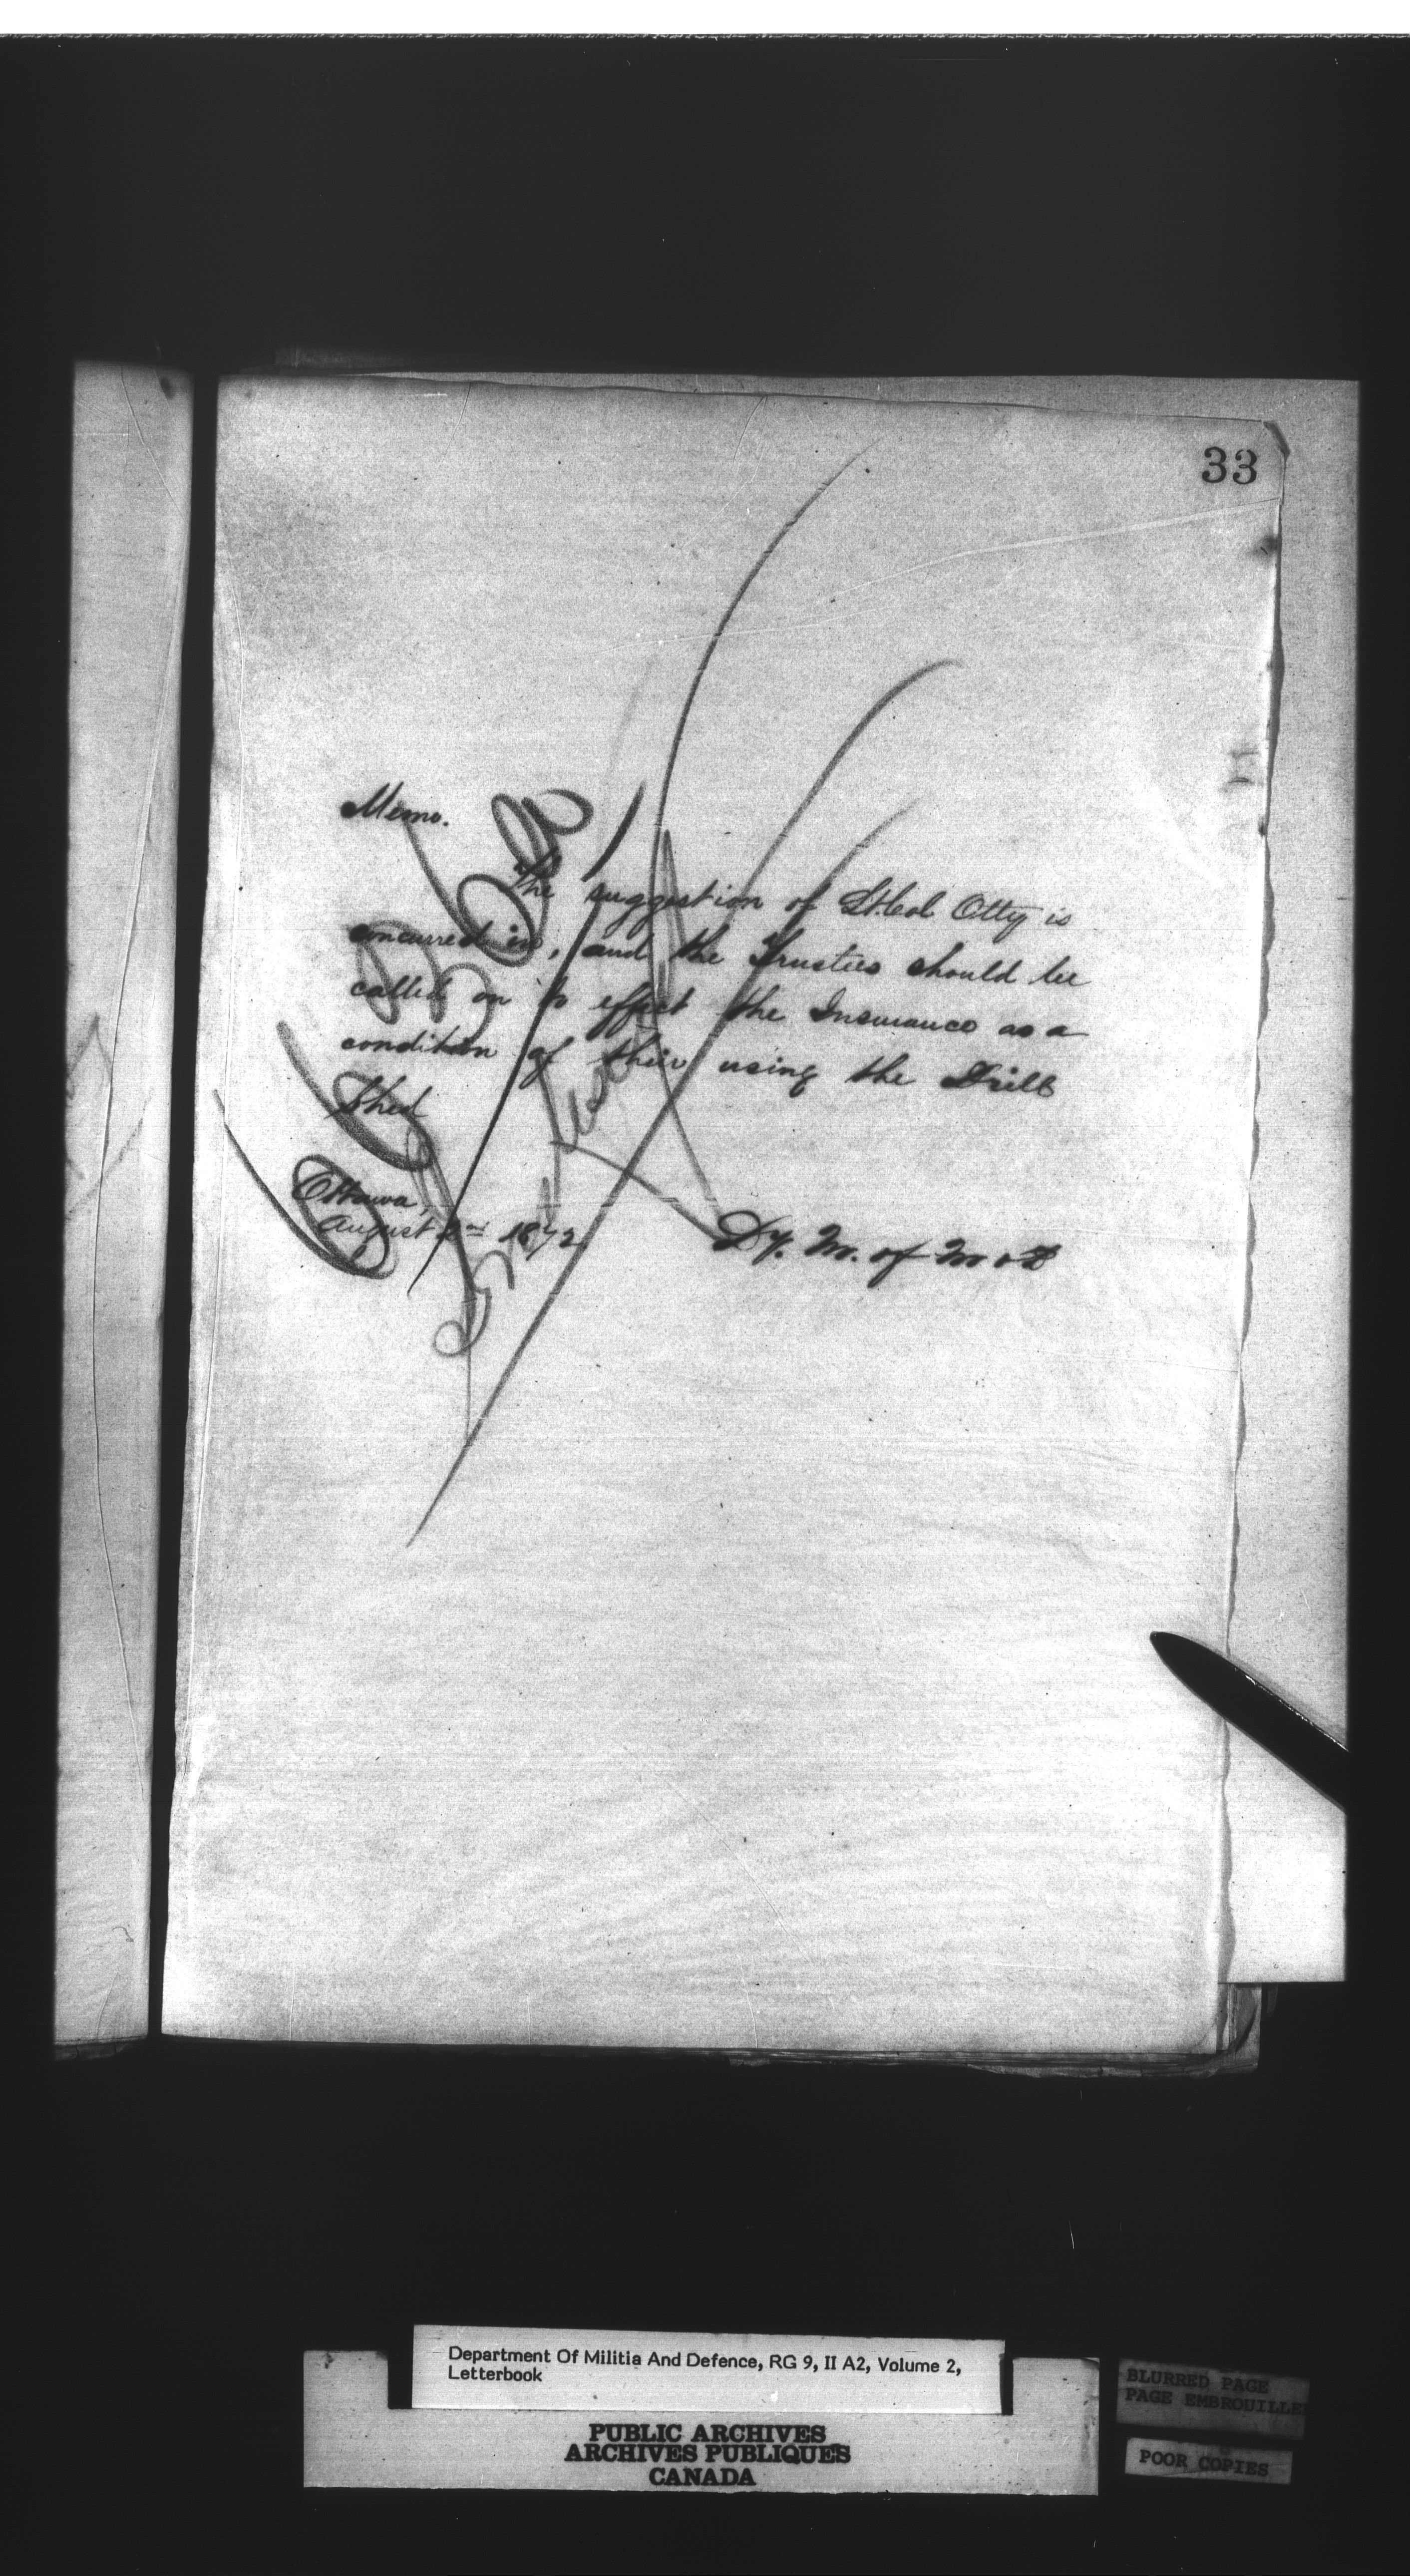 33
Memo.
The suggestion of Lt. Col Otty is
concurred in, and the Trustees should be
called on to effect the Insurance as a
condition of their using the Drill
Shed
Ottawa,
August 2nd 1872
Dy. M. of M & D
Department Of Militia And Defence, RG 9, II A2, Volume 2,
Letterbook
PUBLIC ARCHIVES
ARCHIVES PUBLIQUES
CANADA
BLURRED PAGE
PAGE EMBROUILLE
POOR COPIES